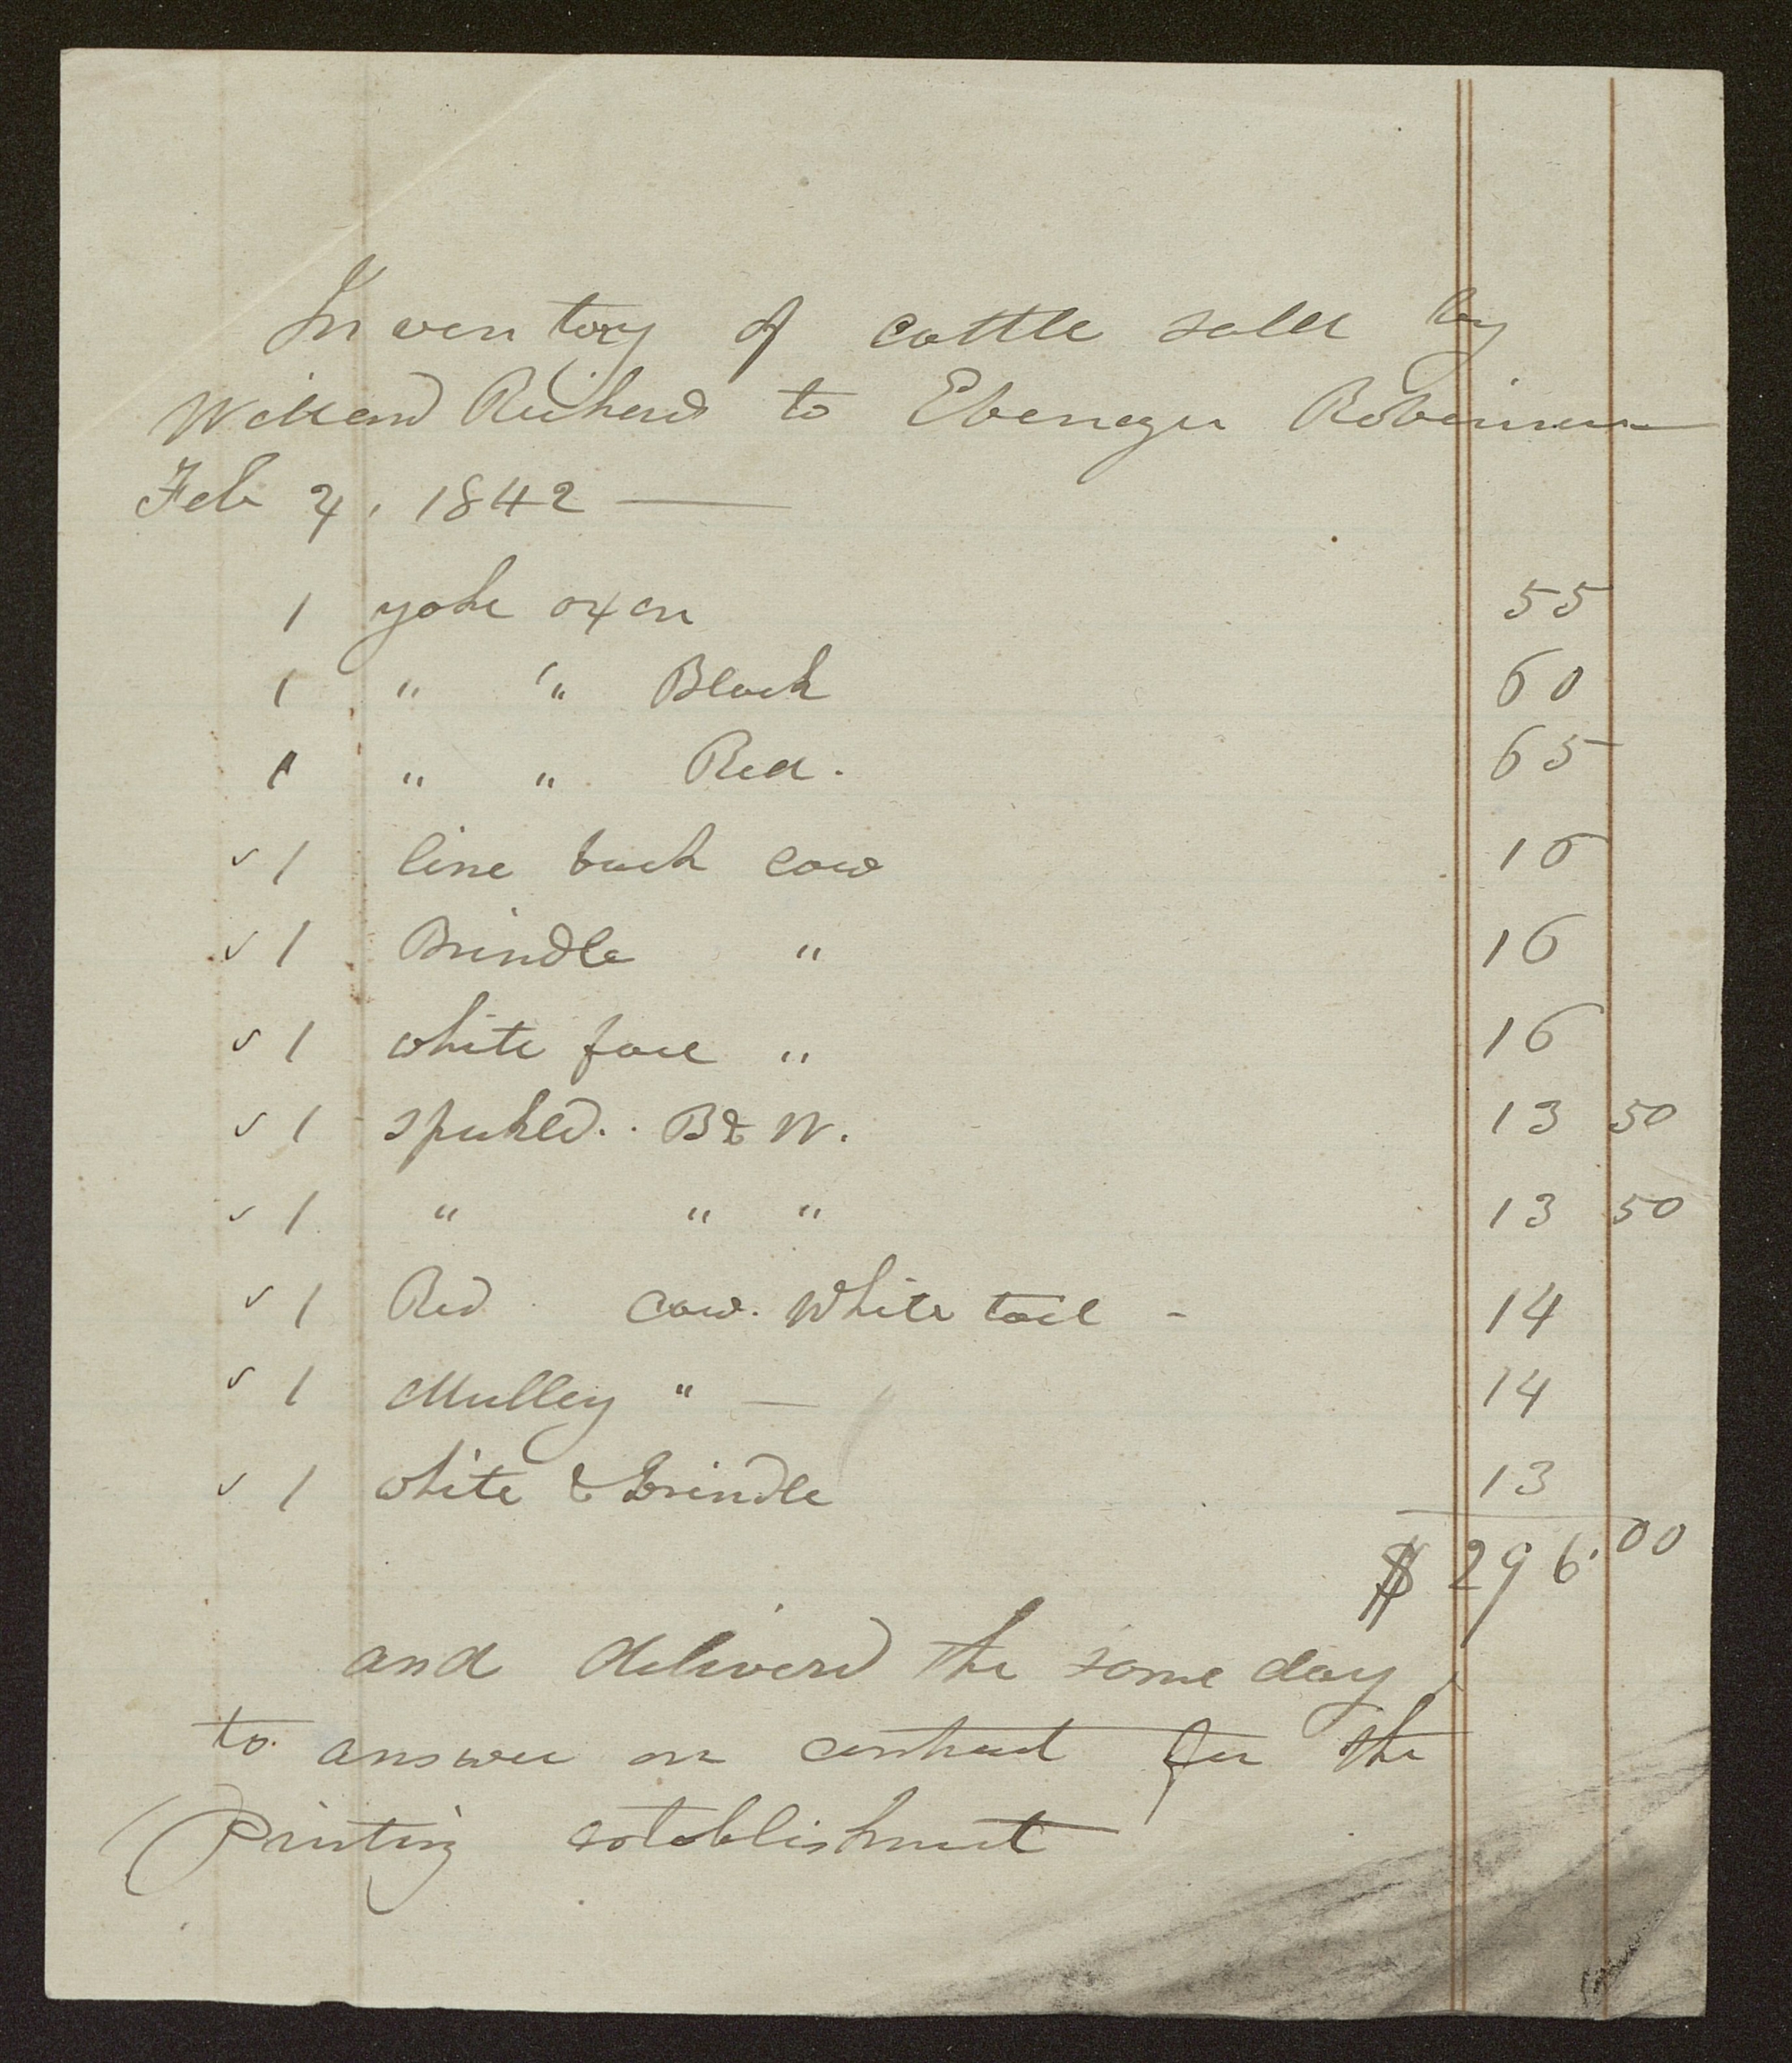 Inventory of cattle sold by
Willard Richards to Ebenezer Robinson
Feb 4, 1842 —
1 yoke oxen 55
1 " " Black 60
1 " " Red. 65
✓ 1 line back cow 16
✓ 1 Brindle " 16
✓ 1 white face " 16
✓ 1 speckled.. B & W. 13 50
✓ 1 " " " 13 50
✓ 1 Red cow. White tail - 14
✓ 1 Mulley " — 14
✓ 1 white & brindle 13
$ 296.00
and deliverd the same day,
to answer on contract for the
Printing establishment